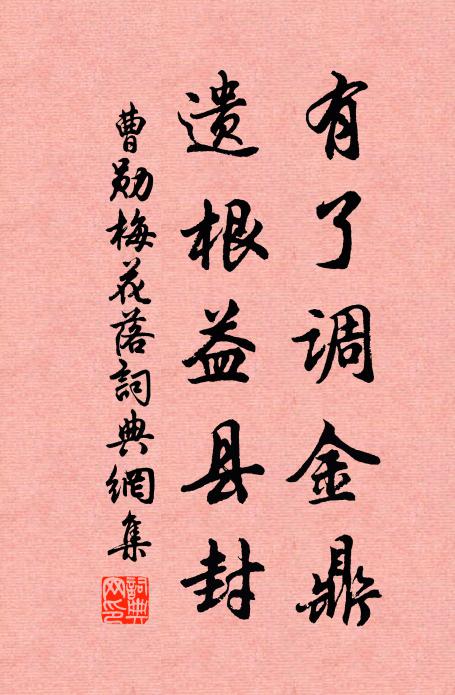 有了调金鼎
遗根益县封
曹勋梅花落詞典網集
詞典网印